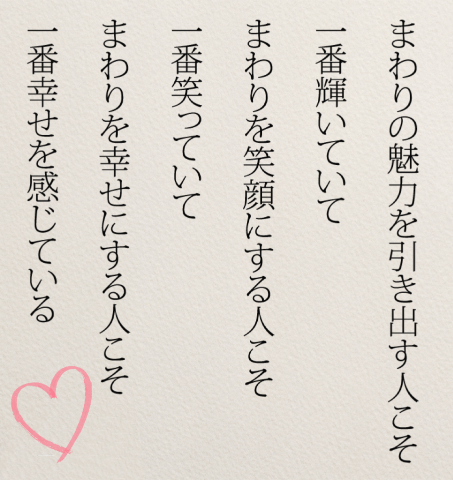 まわりの魅力を引き出す人こそ
一番輝いていて
まわりを笑顔にする人こそ
一番笑っていて
まわりを幸せにする人こそ
一番幸せを感じている